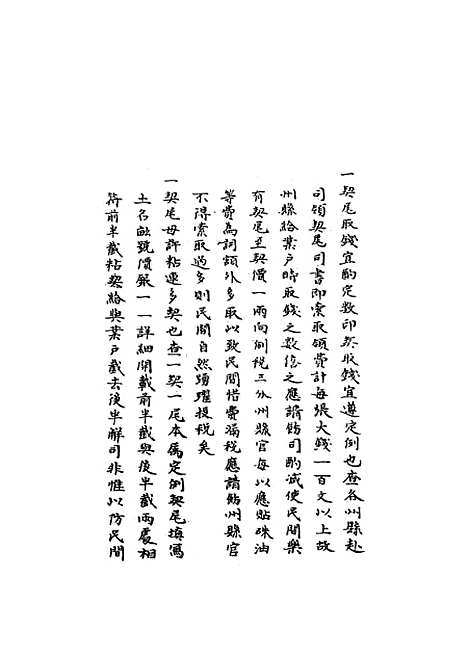 一契尾取錢宜酌定数印契取錢宜遵定例也查各州縣赴
司領契尾司書即索取領費計每張大錢一百文以上故
州縣給業户時取錢之数倍之應請飭司酌減使民間樂
有契尾至契價一兩向例税三分州縣官每以應貼硃油
等費為詞額外多取以致民間惜費漏税應請飭州縣官
不得索取過多則民間自然踴躍投税矣
一契尾毋許粘連多契也查一契一尾本属定例契尾填寫
土名畝號價銀一一詳細開載前半截與後半截両處相
符前半截粘契給與業户截去後半解司非惟以防民間